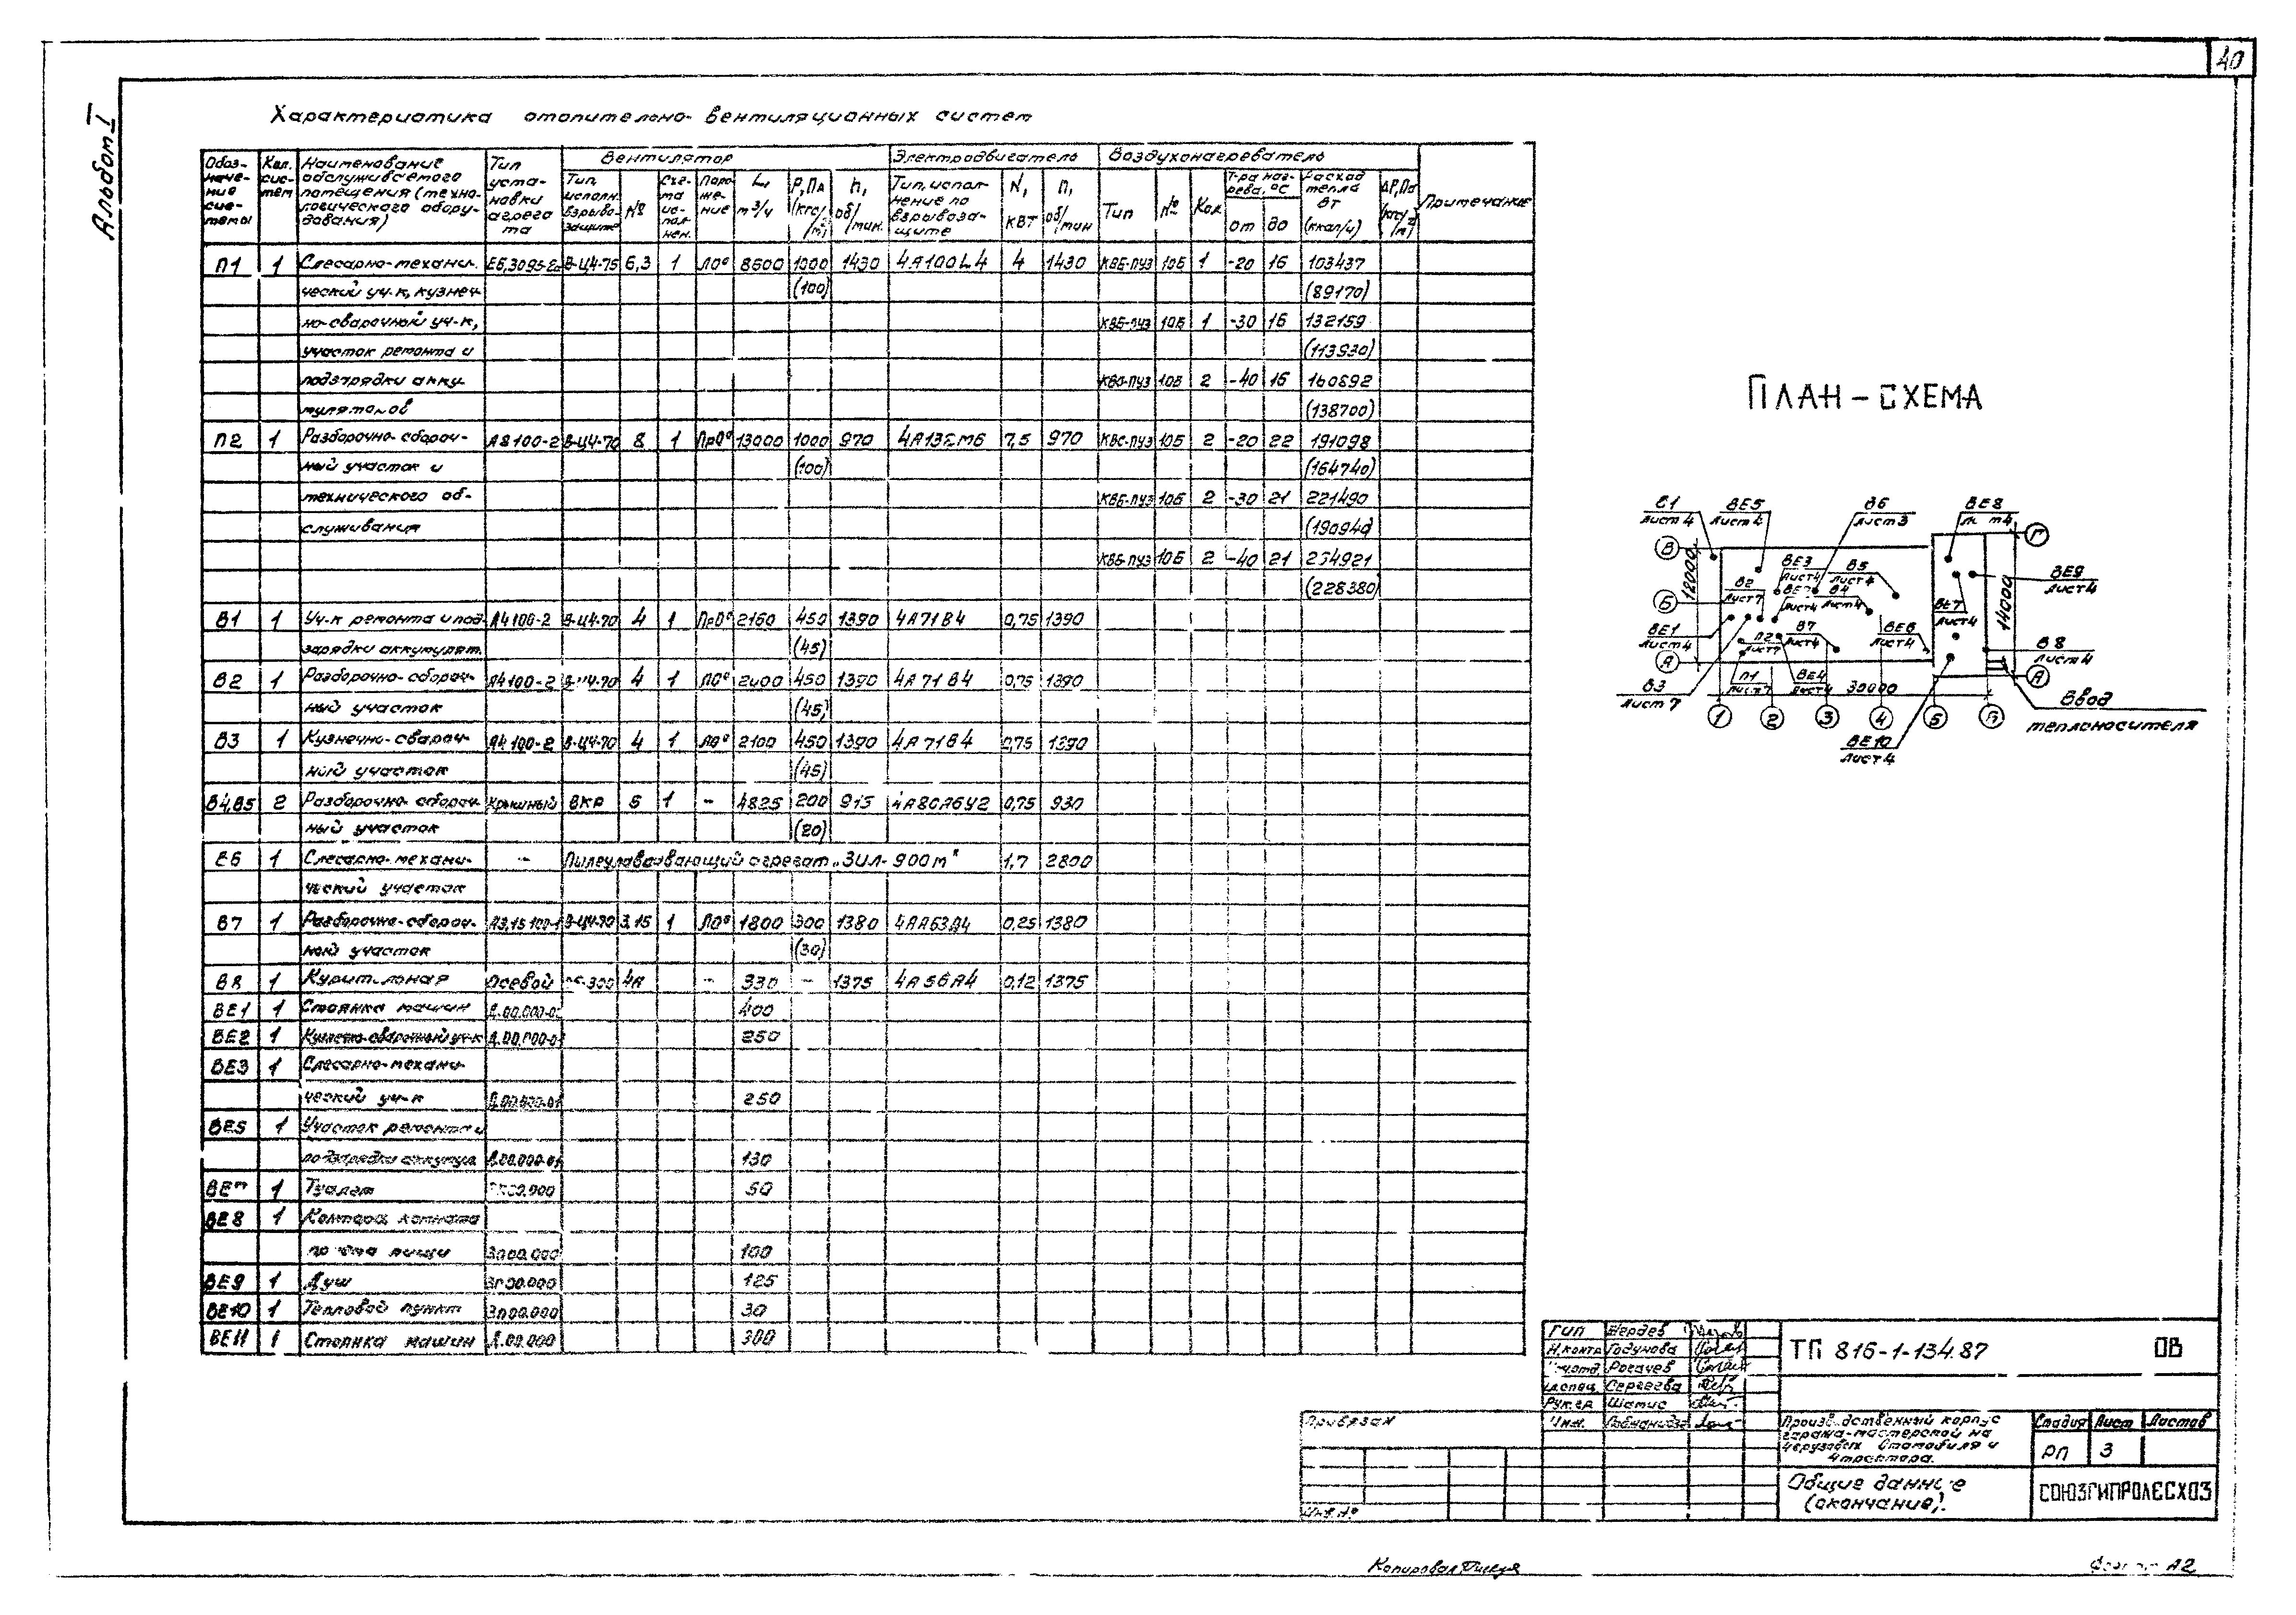 40
Альбом I
Характеристика отопительно-вентиляционных систем
Обоз-наче-ние сис-темы | Кол. сис-тем | Наименование обслуживаемого помещения (техно-логического обору-дования) | Тип уста-новки агрега та | Вентилятор | Электродвигатель | Воздухонагреватель | Примечание
Тип, исполн. взрыво-защите | № | Схе-ма ис-пол-нен. | Поло-же-ние | L, м³/ч | Р, Па (кгс/м²) | n, об/мин. | Тип, испол-нение по взрывоза-щите | N, кВт | n, об/мин | Тип | № | Кол | Т-ра наг-рева, °С от до | Расход тепла Вт (ккал/ч) | ΔР, Па (кгс/м²)
П1 1 Слесарно-механи- Е6,3095-2а В-Ц4-75 6,3 1 Л0° 8600 1000 1430 4А100L4 4 1430 КВБ-ПУЗ 10Б 1 -20 16 103437
ческий уч-к, кузнеч- (100) (89170)
но-сварочный уч-к, КВБ-ПУЗ 10Б 1 -30 16 132159
участок ремонта и (113930)
подзарядки акку- 10Б 2 -40 16 160892
муляторов (138700)
П2 1 Разборочно-сбороч- А8100-2 В-Ц4-70 8 1 Пр0° 13000 1000 970 4А132М6 7,5 970 10Б 2 -20 22 191098
ный участок и (100) (164740)
технического об- КВБ-ПУЗ 10Б 2 -30 21 221490
служивания (190940)
КВБ-ПУЗ 10Б 2 -40 21 264921
(228380)
В1 1 Уч-к ремонта и под А4100-2 В-Ц4-70 4 1 Пр0° 2160 450 1390 4А71В4 0,75 1390
зарядки аккумулят. (45)
В2 1 Разборочно-сбороч- А4100-2 В-Ц4-70 4 1 Л0° 2400 450 1390 4А71В4 0,75 1390
ный участок (45)
В3 1 Кузнечно-свароч- А4100-2 В-Ц4-70 4 1 Л0° 2100 450 1390 4А71В4 0,75 1390
ный участок (45)
В4,В5 2 Разборочно-сбороч- Крышный ВКР 5 1 - 4825 200 915 4А80А6У2 0,75 930
ный участок (20)
В6 1 Слесарно-механи- - Пылеулавливающий агрегат „ЗИЛ-900м" 1,7 2800
ческий участок
В7 1 Разборочно-сбороч- А3,15100-1 В-Ц4-70 3,15 1 Л0° 1800 300 1380 4АА63А4 0,25 1380
ный участок (30)
В8 1 Курительная Осевой 06-300 4А - 330 - 1375 4А56А4 0,12 1375
ВЕ1 1 Стоянка машин 400
ВЕ2 1 Кузнечно-сварочный уч-к 250
ВЕ3 1 Слесарно-механи-
ческий уч-к 250
ВЕ5 1 Участок ремонта и
подзарядки аккумул. 130
ВЕ7 1 Туалет 50
ВЕ8 1 Контора, комната
приёма пищи ЗП00.000 100
ВЕ9 1 Душ ЗП00.000 125
ВЕ10 1 Тепловой пункт ЗП00.000 30
ВЕ11 1 Стоянка машин Д.00.000 300
ПЛАН-СХЕМА
В1 лист 4
ВЕ5 лист 4
В6 лист 3
ВЕ8 лист 4
В Г
12000
ВЕ3 лист 4
В5 лист 4
ВЕ9 лист 4
Б
В2 лист 7
ВЕ2 лист 4
В4 лист 4
ВЕ7 лист 4
14000
ВЕ1 лист 4
П2 лист 7
В7 лист 4
ВЕ6 лист 4
В8 лист 4
А А
В3 лист 7
П1 лист 7
ВЕ4 лист 4
30000
Ввод
теплоносителя
1 2 3 4 5 6
ВЕ10 лист 4
ГИП Нердев
Н.контр Годунова
Нач.отд. Рогачев
Гл.спец. Сергеева
Рук.гр. Шатис
Инж.
ТП 816-1-134.87 ОВ
Привязан
Инв.№
Производственный корпус
гаража-мастерской на
4 грузовых автомобиля и
4 трактора.
Стадия Лист Листов
РП 3
Общие данные
(окончание).
СОЮЗГИПРОЛЕСХОЗ
Копировал
Формат А2